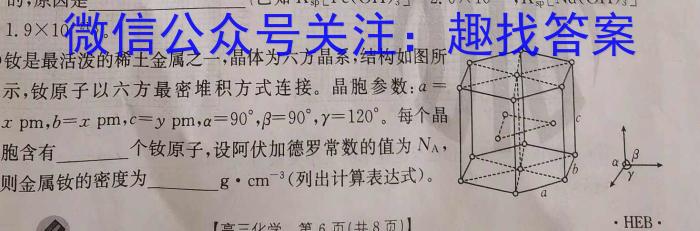 的,原因是
1.9×10
微信公众号关注：趣找答案
钕是最活泼的稀土金属之一,晶体为六方晶系,结构如图所
示,钕原子以六方最密堆积方式连接。晶胞参数:a=
x pm,b=x pm,c=y pm,α=90°,β=90°,γ=120°。每个晶
胞含有________个钕原子,设阿伏加德罗常数的值为 NA,
则金属钕的密度为________g·cm⁻³(列出计算表达式)。
c
b
a
α
β
γ
【高三化学 第6页(共8页)】
·HEB·